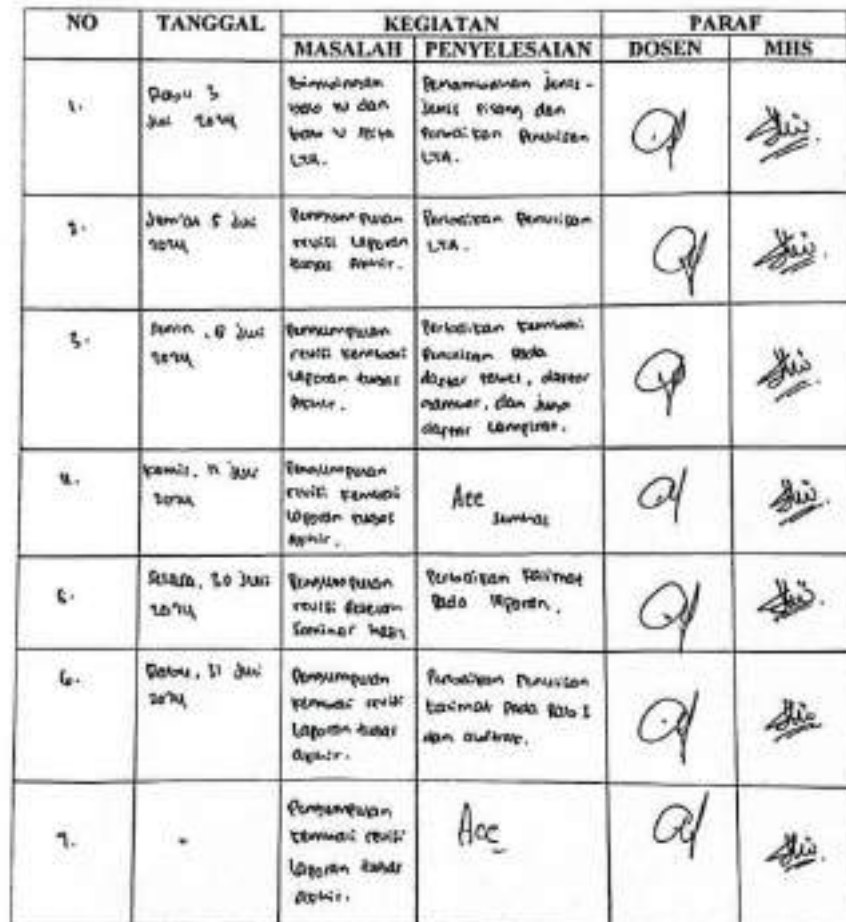 NO TANGGAL KEGIATAN PARAF
MASALAH PENYELESAIAN DOSEN MHS
1.
Rabu 3
Juli 2024
Bimbingan
bab IV dan
bab V pada
LTA.
Penambahan jenis-
jenis pisang dan
Perbaikan Penulisan
LTA.
2.
Jum'at 5 Juli
2024
Pengumpulan
revisi Laporan
tugas Akhir.
Perbaikan Penulisan
LTA.
3.
Senin, 8 Juli
2024
Pengumpulan
revisi kembali
Laporan tugas
Akhir.
Perbaikan kembali
Penulisan Pada
daftar tabel, daftar
gambar, dan juga
daftar Lampiran.
4.
Kamis, 11 Juli
2024
Pengumpulan
revisi kembali
Laporan tugas
Akhir.
Acc
Semhas
5.
Selasa, 30 Juli
2024
Pengumpulan
revisi setelah
Seminar hasil
Perbaikan kalimat
Pada laporan.
6.
Rabu, 31 Juli
2024
Pengumpulan
kembali revisi
Laporan tugas
Akhir.
Perbaikan Penulisan
kalimat Pada Bab I
dan
7.
-
Pengumpulan
kembali revisi
Laporan tugas
Akhir.
Acc